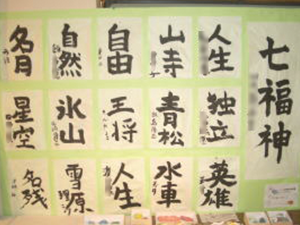 七福神
人生
山寺
自由
自然
名月
独立
青松
王将
氷山
星空
英雄
水車
人生
雪原
名残